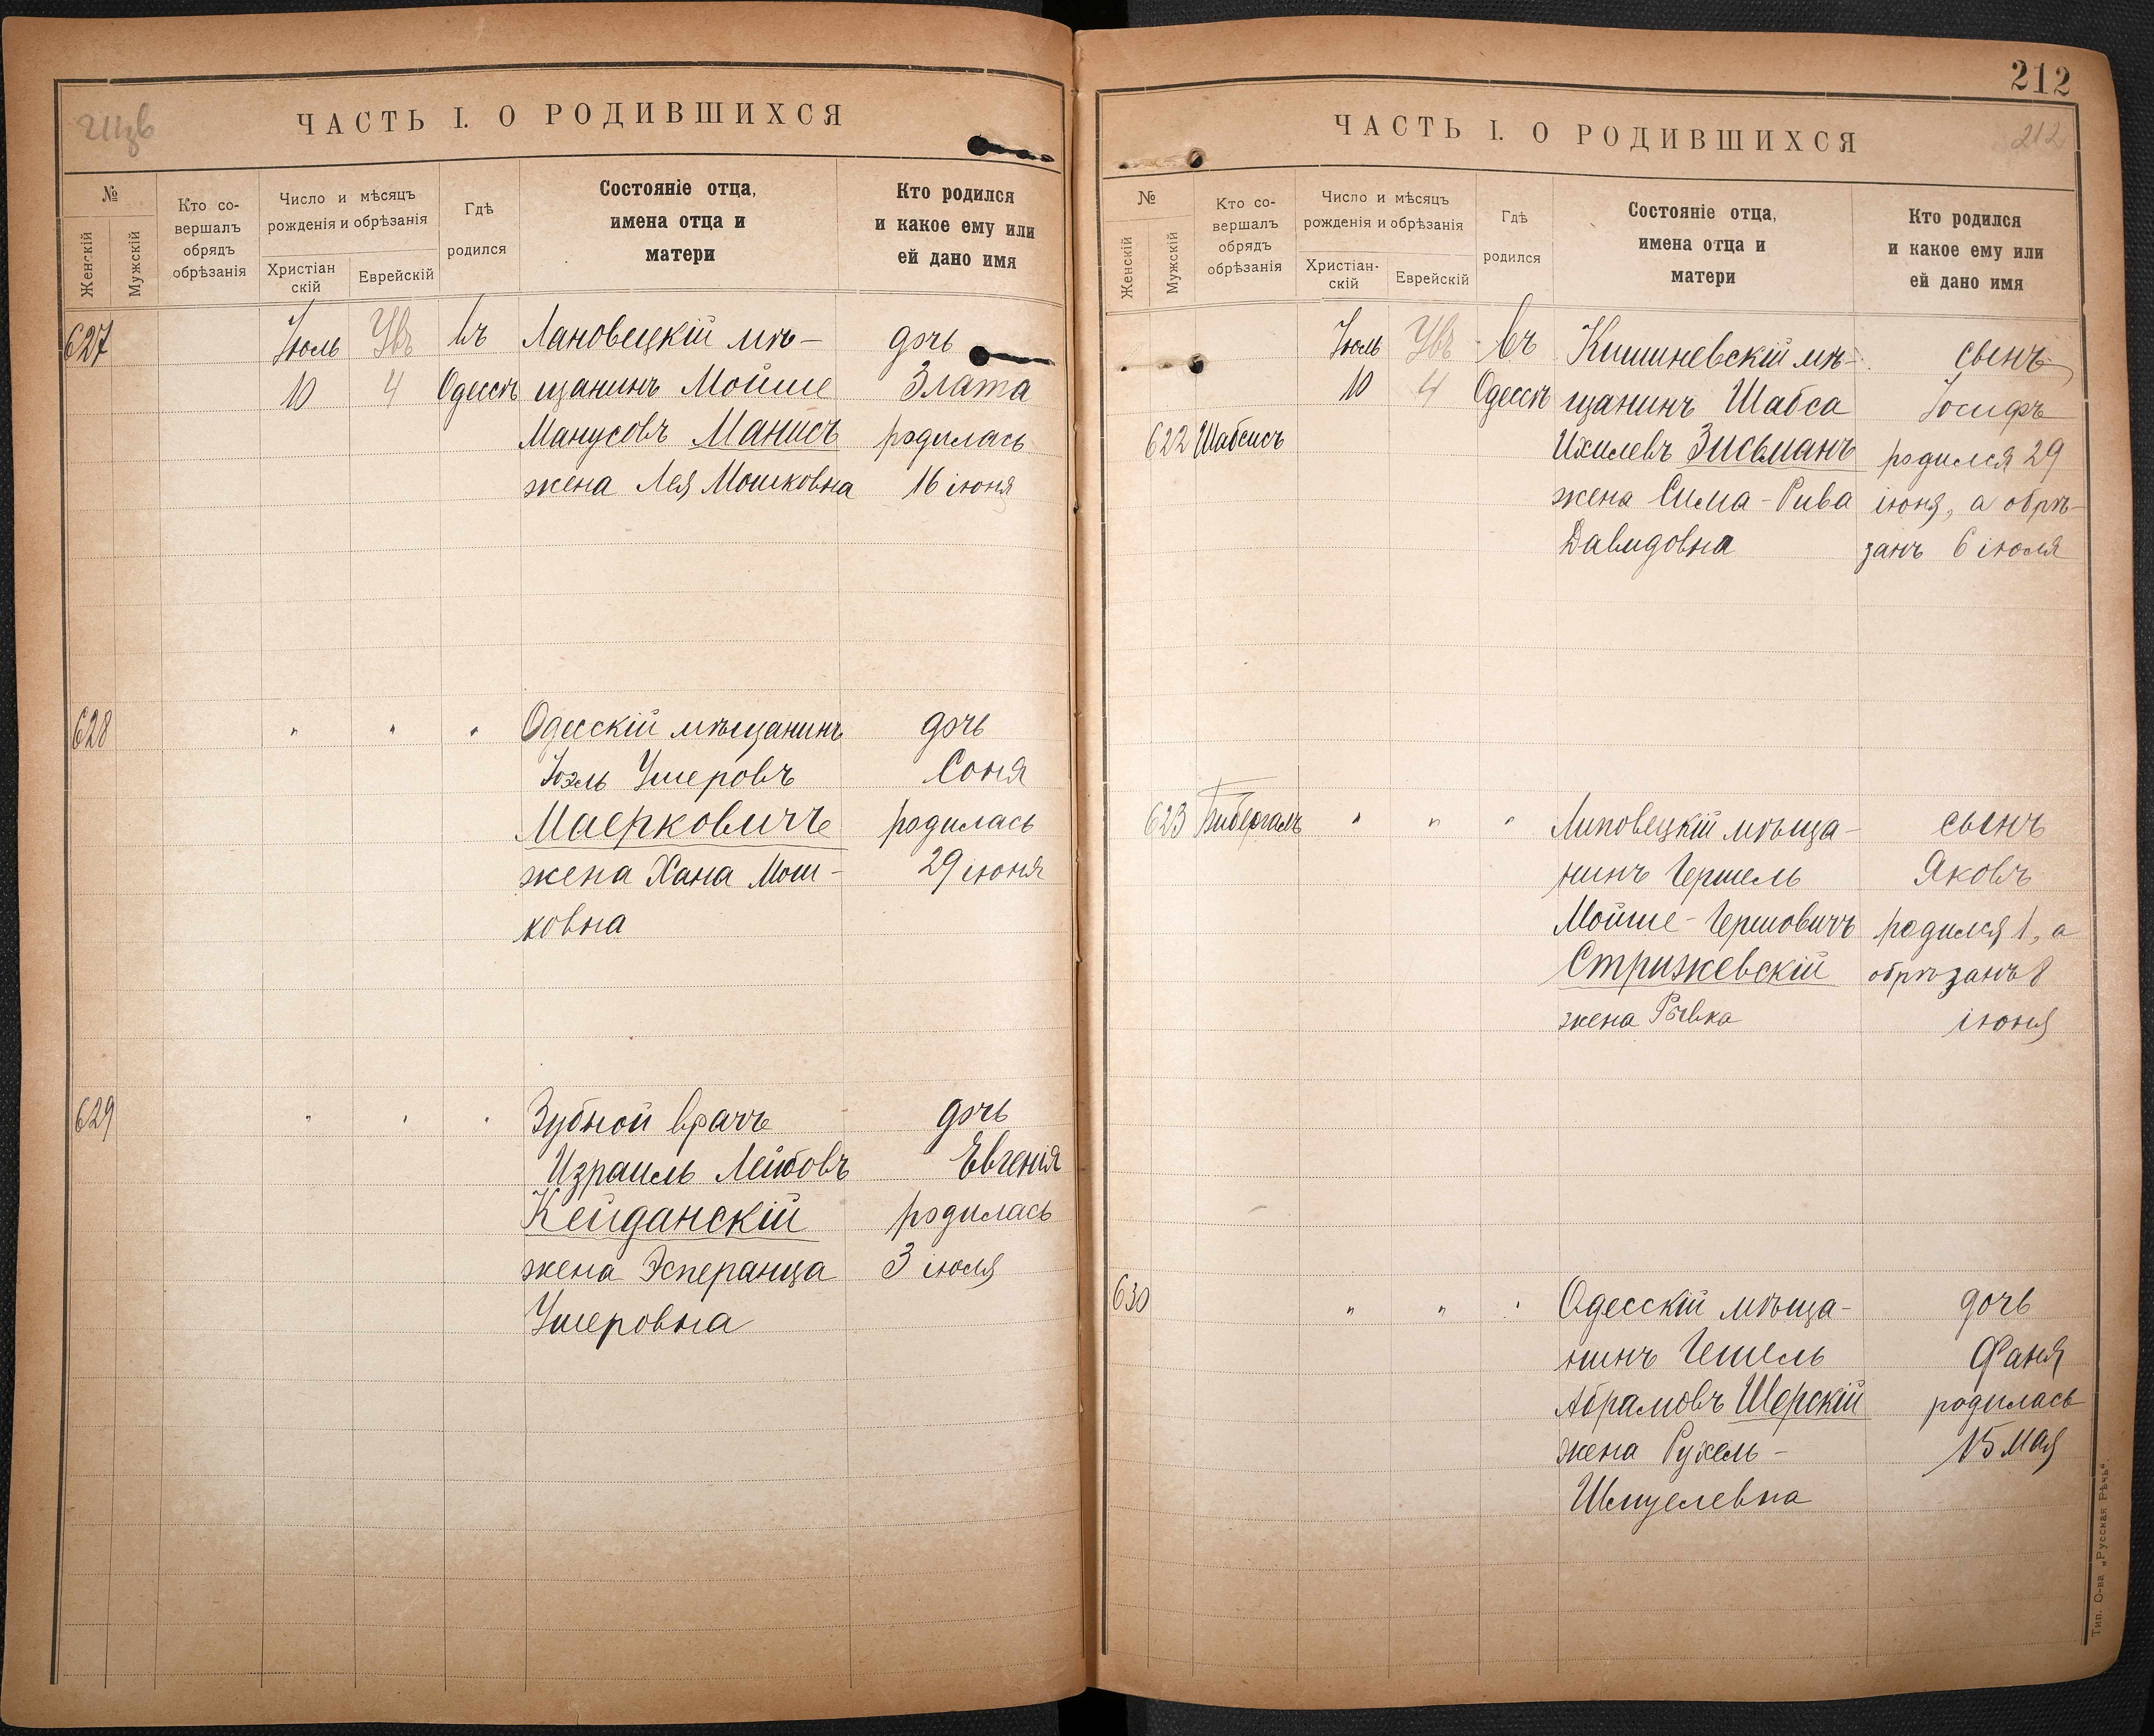 ЧАСТЬ I. О РОДИВШИХСЯ
№
Женскій
Мужскій
Кто со-
вершалъ
обрядъ
обрѣзанія
Число и мѣсяцъ
рожденія и обрѣзанія
Христіан
скій
Еврейскій
Гдѣ
родился
Состояніе отца,
имена отца и
матери
Кто родился
и какое ему или
ей дано имя
627 Іюль въ Лановецкій мѣ- дочь
10 4 Одессѣ щанинъ Мойше Злата
Манусовъ Манисъ родилась
жена Лея Мошковна 16 іюня
628 " " " Одесскій мѣщанинъ дочь
Іоэль Ушеровъ Соня
Маерковичъ родилась
жена Хана Мош- 29 іюня
ковна
629 " " " Зубной врачъ дочь
Израиль Лейбовъ Евгенія
Кейданскій родилась
жена Эсперанца 3 іюля
Ушеровна
212
212
ЧАСТЬ I. О РОДИВШИХСЯ
№
Женскій
Мужскій
Кто со-
вершалъ
обрядъ
обрѣзанія
Число и мѣсяцъ
рожденія и обрѣзанія
Христіан-
скій
Еврейскій
Гдѣ
родился
Состояніе отца,
имена отца и
матери
Кто родился
и какое ему или
ей дано имя
Іюль въ Кишиневскій мѣ- сынъ
10 4 Одессѣ щанинъ Шабса Іосифъ
622 Шабсисъ Ихилевъ Зисьманъ родился 29
жена Сима-Рива іюня, а обрѣ-
Давидовна занъ 6 іюля
623 Бибергаль " " " Липовецкій мѣща- сынъ
нинъ Гершель Яковъ
Мойше-Гершовичъ родился 1, а
Стрижевскій обрѣзанъ 8
жена Рывка іюня
630 " " " Одесскій мѣща- дочь
нинъ Гешель Фаня
Абрамовъ Шерскій родилась
жена Рухель- 15 мая
Шмуелевна
Тип. О-ва „Русская Рѣчь“.